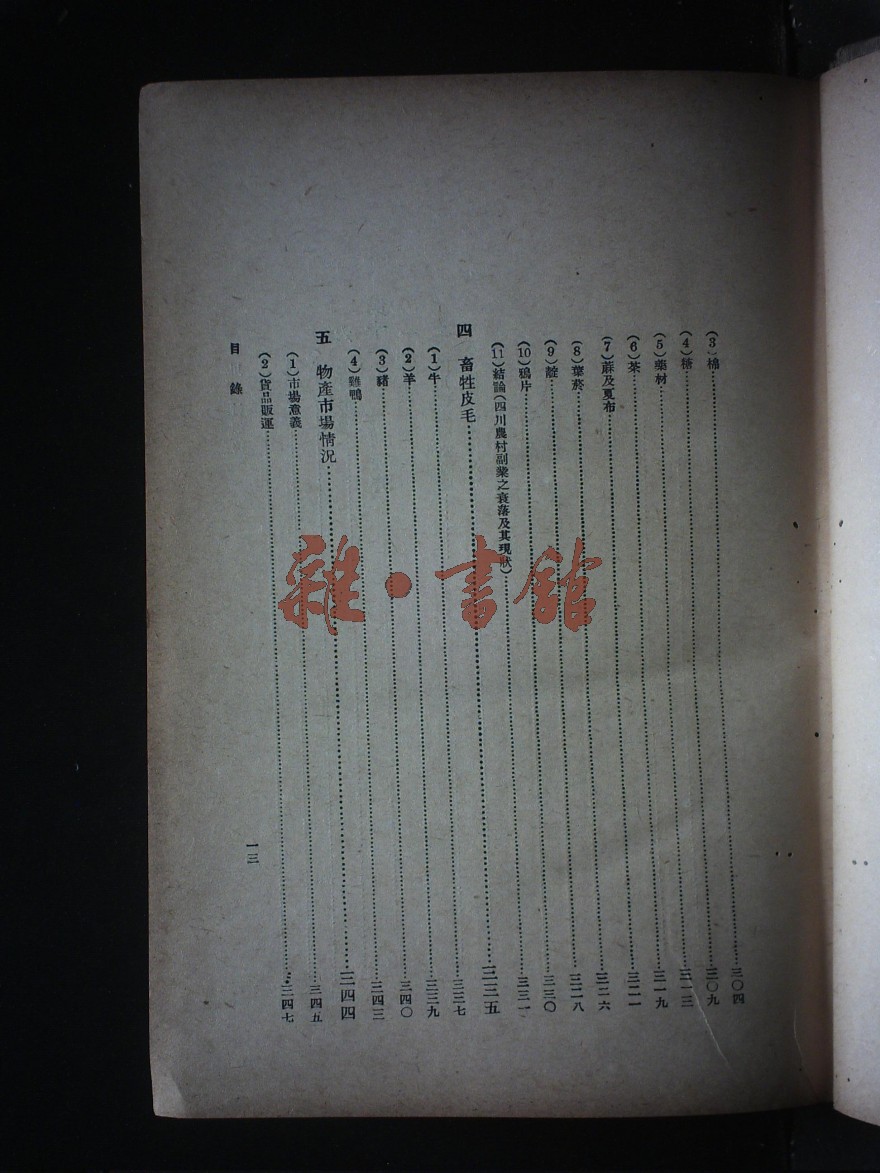 (3)棉……三〇四
(4)糖……三〇九
(5)藥材……三一三
(6)茶……三一九
(7)蔴及夏布……三二一
(8)葉菸……三二六
(9)……三二八
(10)鴉片……三三〇
(11)結論(四川農村副業之衰落及其現狀)……三三一
四 畜牲皮毛……三三五
(1)牛……三三七
(2)羊……三三九
(3)豬……三四〇
(4)雞鴨……三四三
五 物產市場情況……三四四
(1)市場意義……三四五
(2)貨品販運……三四七
目錄
一三
雜·書館